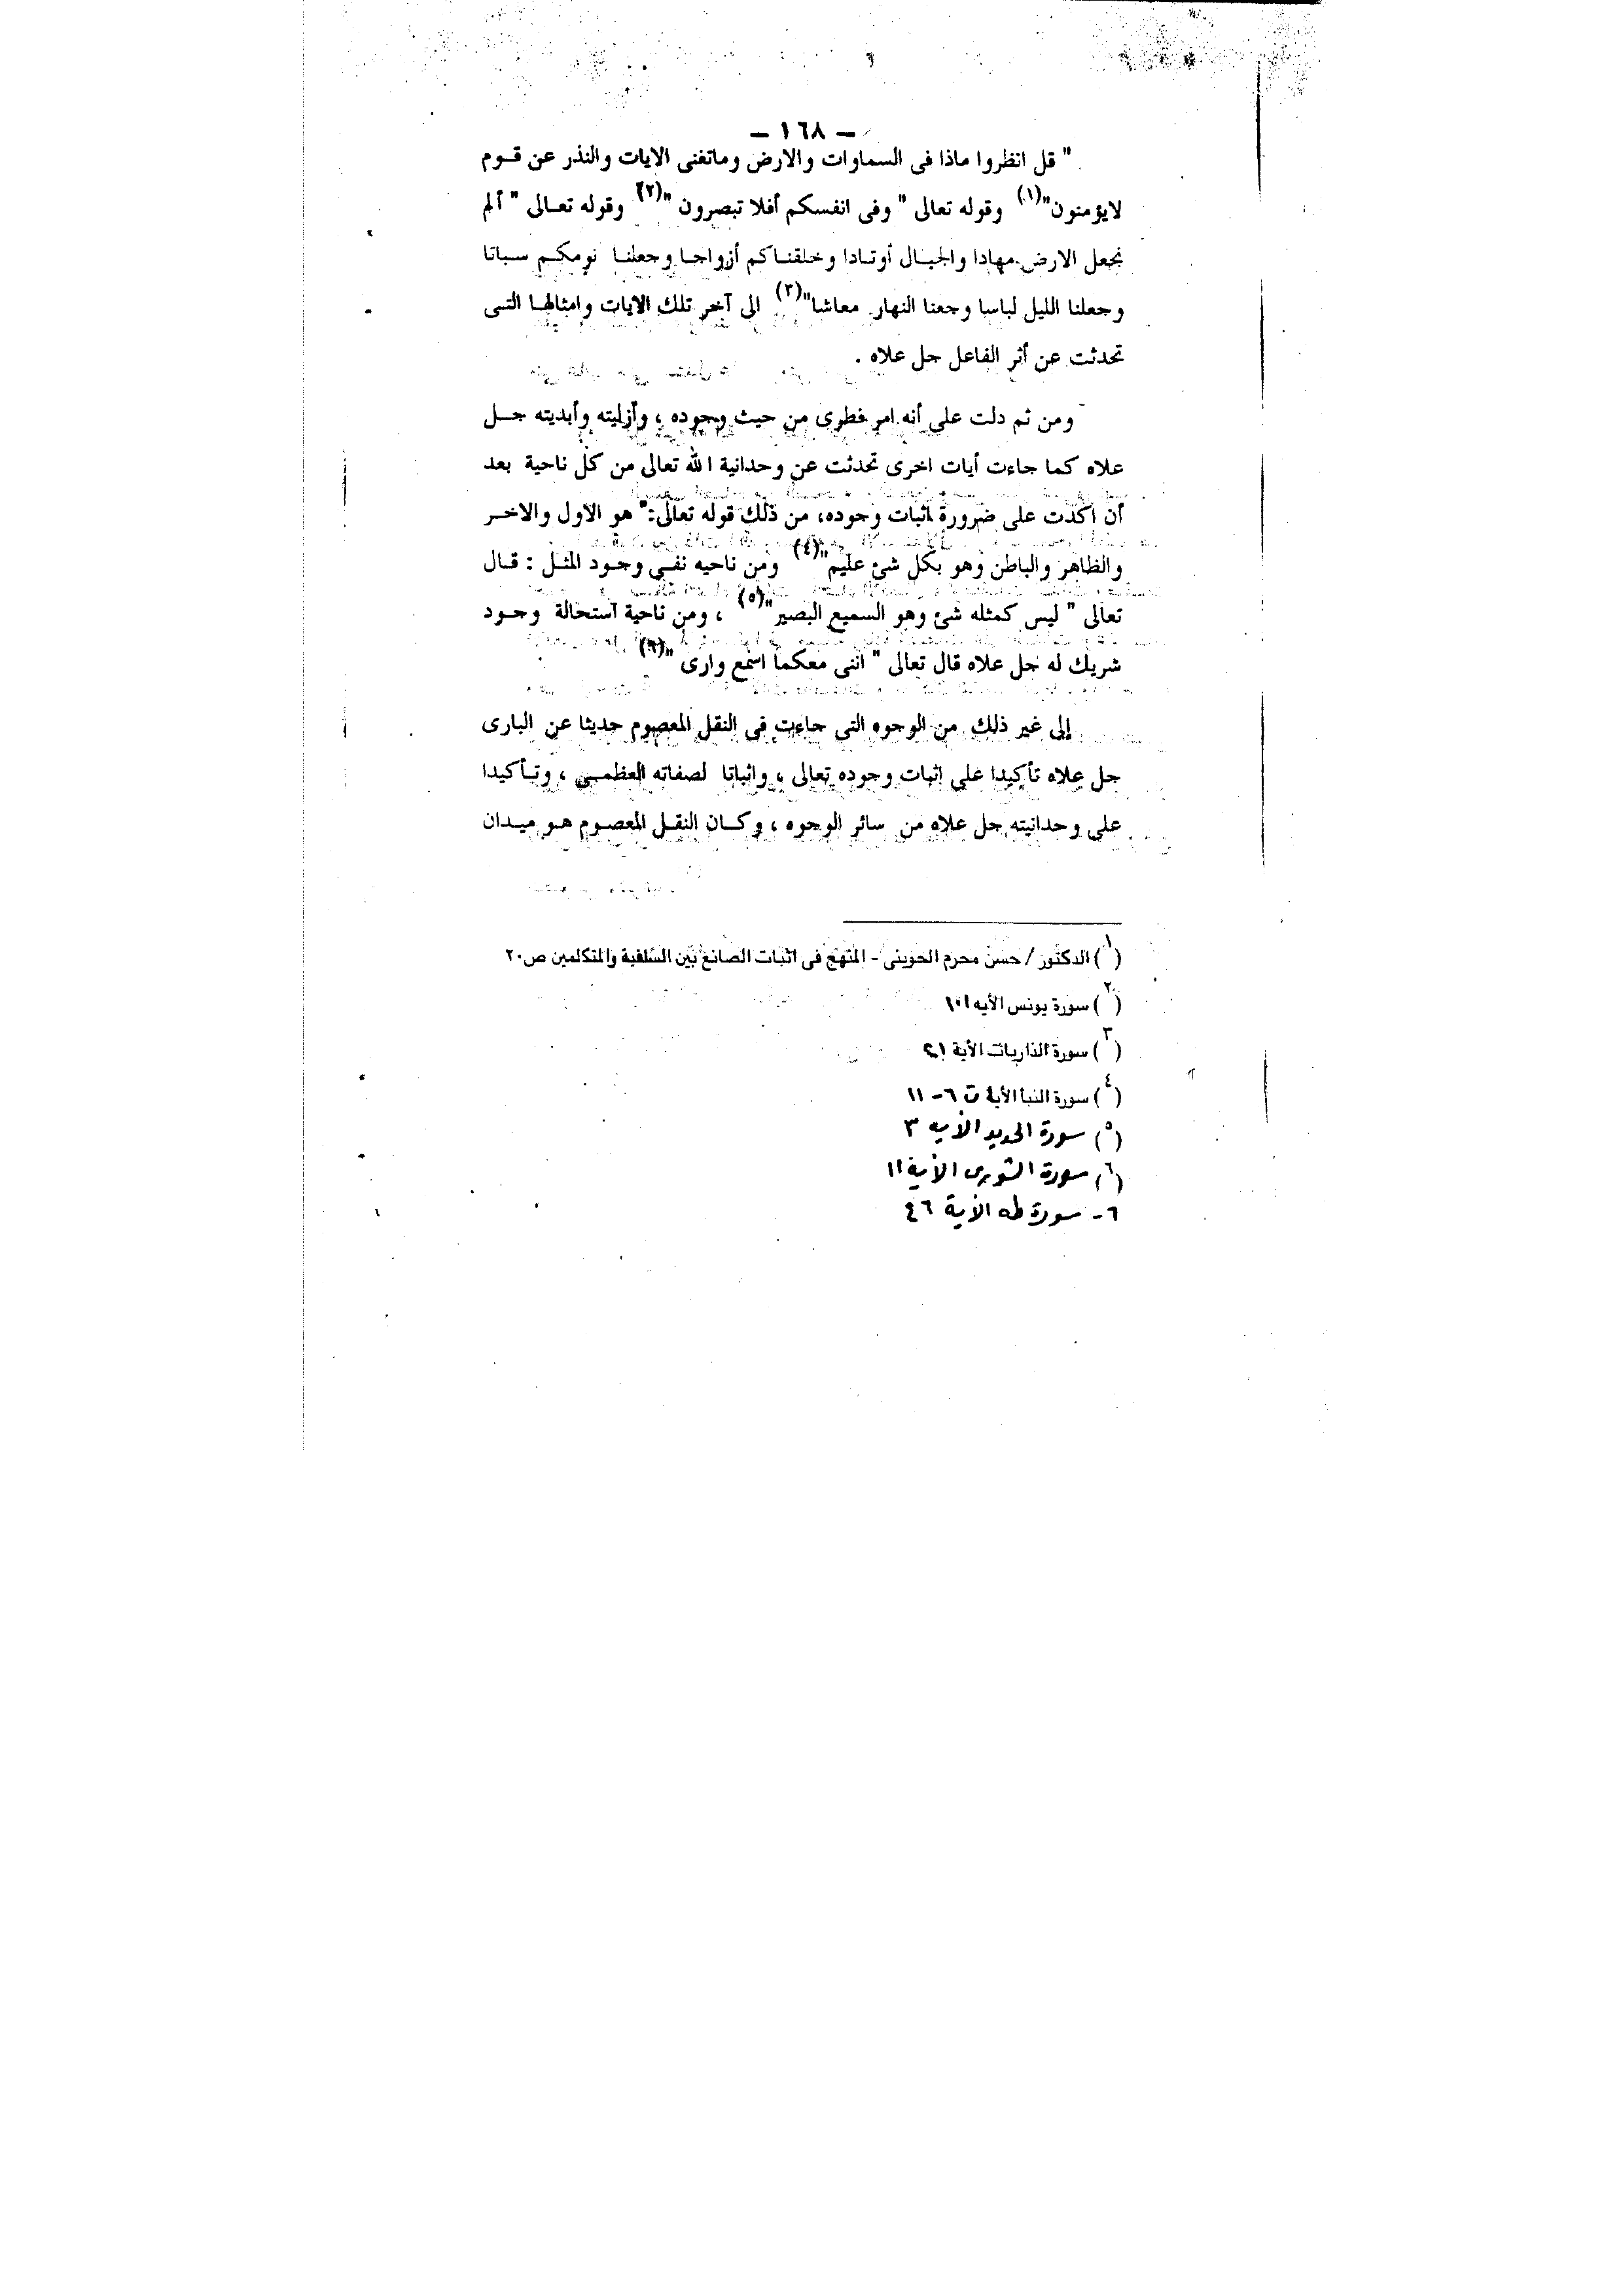 – ١٦٨ –
" قل انظروا ماذا فى السماوات والارض وماتغنى الايات والنذر عن قوم
لايؤمنون"(١) وقوله تعالى " وفى انفسكم أفلا تبصرون "(٢) وقوله تعالى " ألم
نجعل الارض مهادا والجبال أوتادا وخلقناكم أزواجا وجعلنا نومكم سباتا
وجعلنا الليل لباسا وجعنا النهار معاشا"(٣) الى آخر تلك الايات وامثالها التى
تحدثت عن أثر الفاعل جل علاه .
ومن ثم دلت على أنه امر فطرى من حيث وجوده ، وأزليته وأبديته جل
علاه كما جاءت أيات اخرى تحدثت عن وحدانية الله تعالى من كل ناحية بعد
أن اكدت على ضرورة اثبات وجوده، من ذلك قوله تعالى:" هو الاول والاخر
والظاهر والباطن وهو بكل شئ عليم"(٤) ومن ناحيه نفى وجود المثل : قال
تعالى " ليس كمثله شئ وهو السميع البصير"(٥) ، ومن ناحية استحالة وجود
شريك له جل علاه قال تعالى " اننى معكما اسمع وارى "(٦)
إلى غير ذلك من الوجوه التى جاءت فى النقل المعصوم حديثا عن البارى
جل علاه تأكيدا على اثبات وجوده تعالى ، واثباتا لصفاته العظمى ، وتأكيدا
على وحدانيته جل علاه من سائر الوجوه ، وكان النقل المعصوم هو ميدان
(١) الدكتور / حسن محرم الحوينى - المنهج فى اثبات الصانع بين السلفية والمتكلمين ص٢٠
(٢) سورة يونس الأيه ١٠١
(٣) سورة الذاريات الأية ٢١
(٤) سورة النبا الأيات ٦- ١١
(٥) سورة الحديد الأيه ٣
(٦) سورة الشورى الأية ١١
٦- سورة طه الأية ٤٦